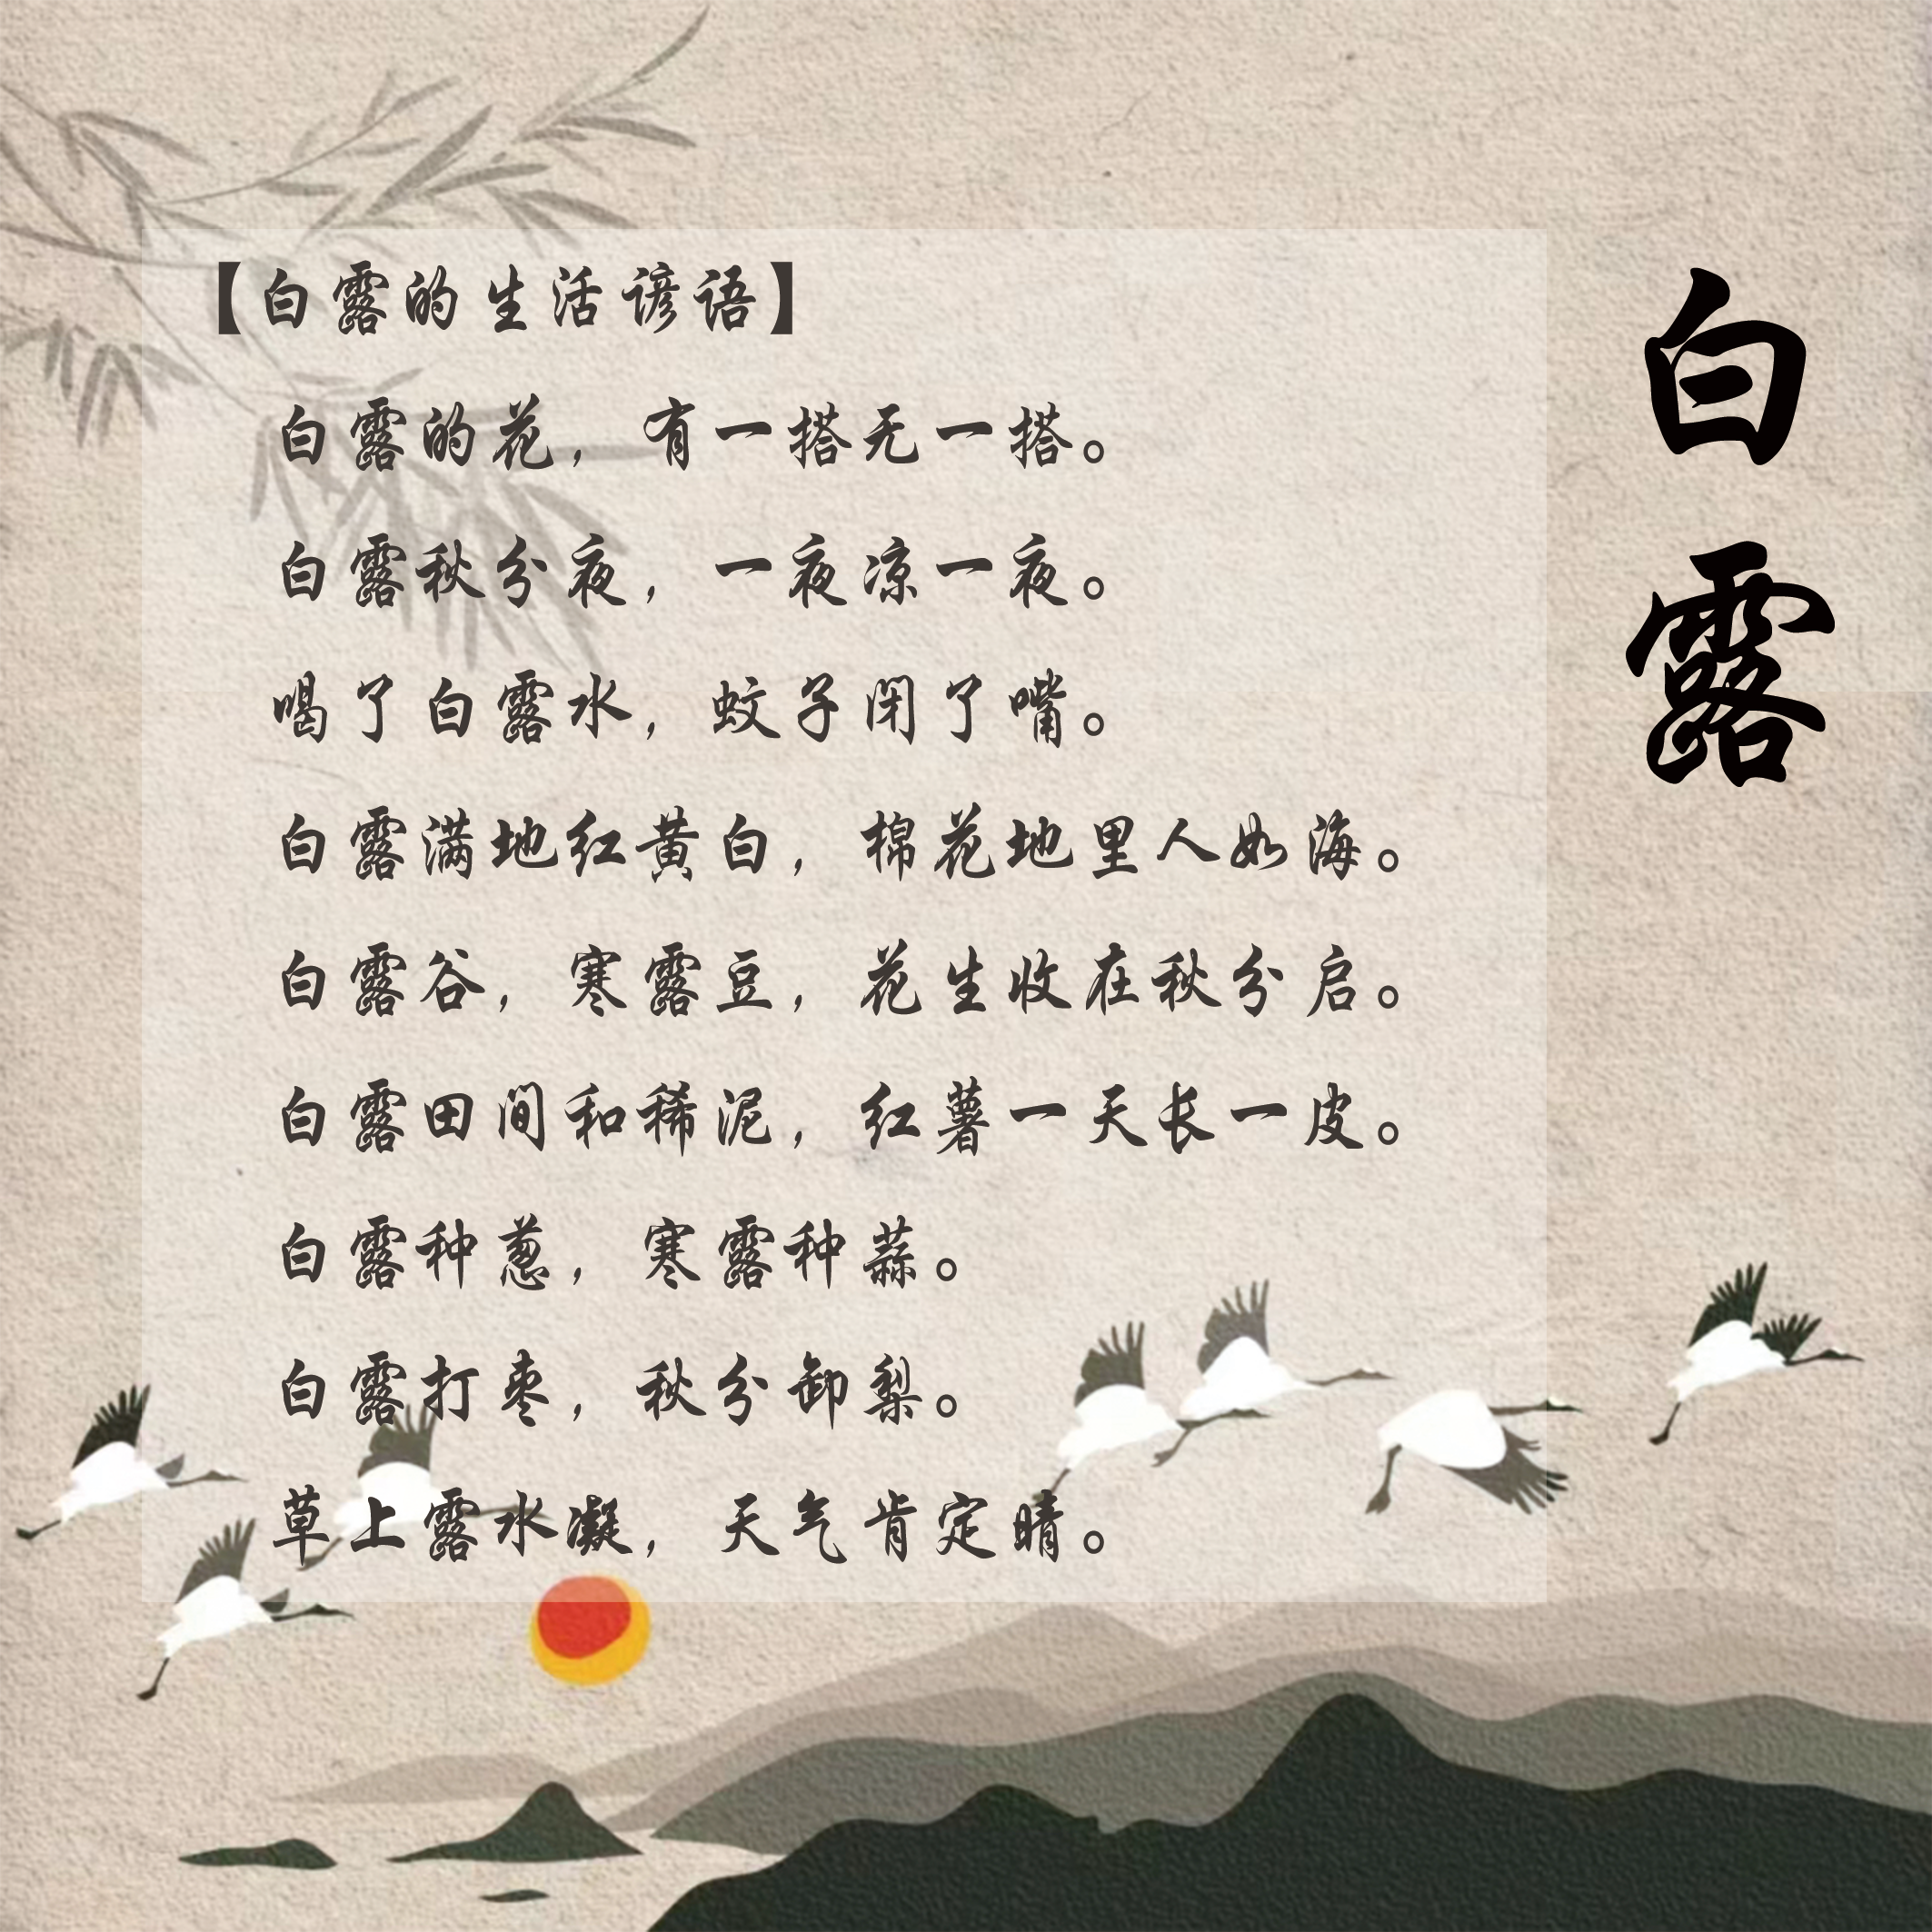 【白露的生活谚语】
白露的花，有一搭无一搭。
白露秋分夜，一夜凉一夜。
喝了白露水，蚊子闭了嘴。
白露满地红黄白，棉花地里人如海。
白露谷，寒露豆，花生收在秋分启。
白露田间和稀泥，红薯一天长一皮。
白露种葱，寒露种蒜。
白露打枣，秋分卸梨。
草上露水凝，天气肯定晴。
白露